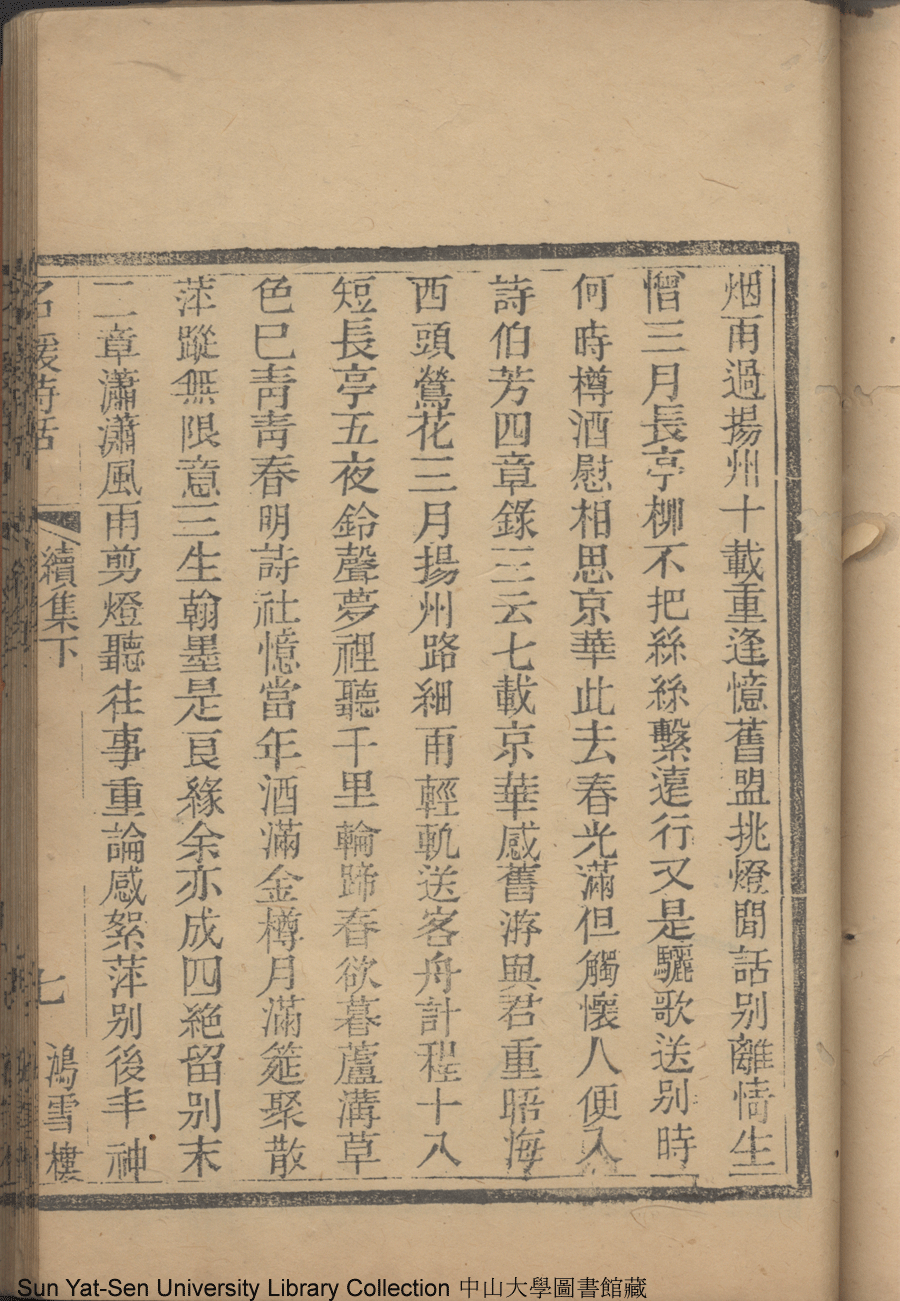 烟雨過揚州十載重逢憶舊盟挑燈閒話别離情生
憎三月長亭柳不把絲絲繫遠行又是驪歌送别時
何時樽酒慰相思京華此去春光滿但觸懷人便入
詩伯芳四章錄三云七載京華感舊游與君重晤海
西頭鶯花三月揚州路細雨輕軏送客舟計程十八
短長亭五夜鈴聲夢裡聽千里輪蹄春欲暮蘆溝草
色巳靑靑春明詩社憶當年酒滿金樽月滿筵聚散
萍蹤無限意三生翰墨是良緣余亦成四絶留别末
二章瀟瀟風雨剪燈聽往事重論感絮萍别後丰神
名媛詩話 續集下 七 鴻雪樓
Sun Yat-Sen University Library Collection 中山大學圖書館藏